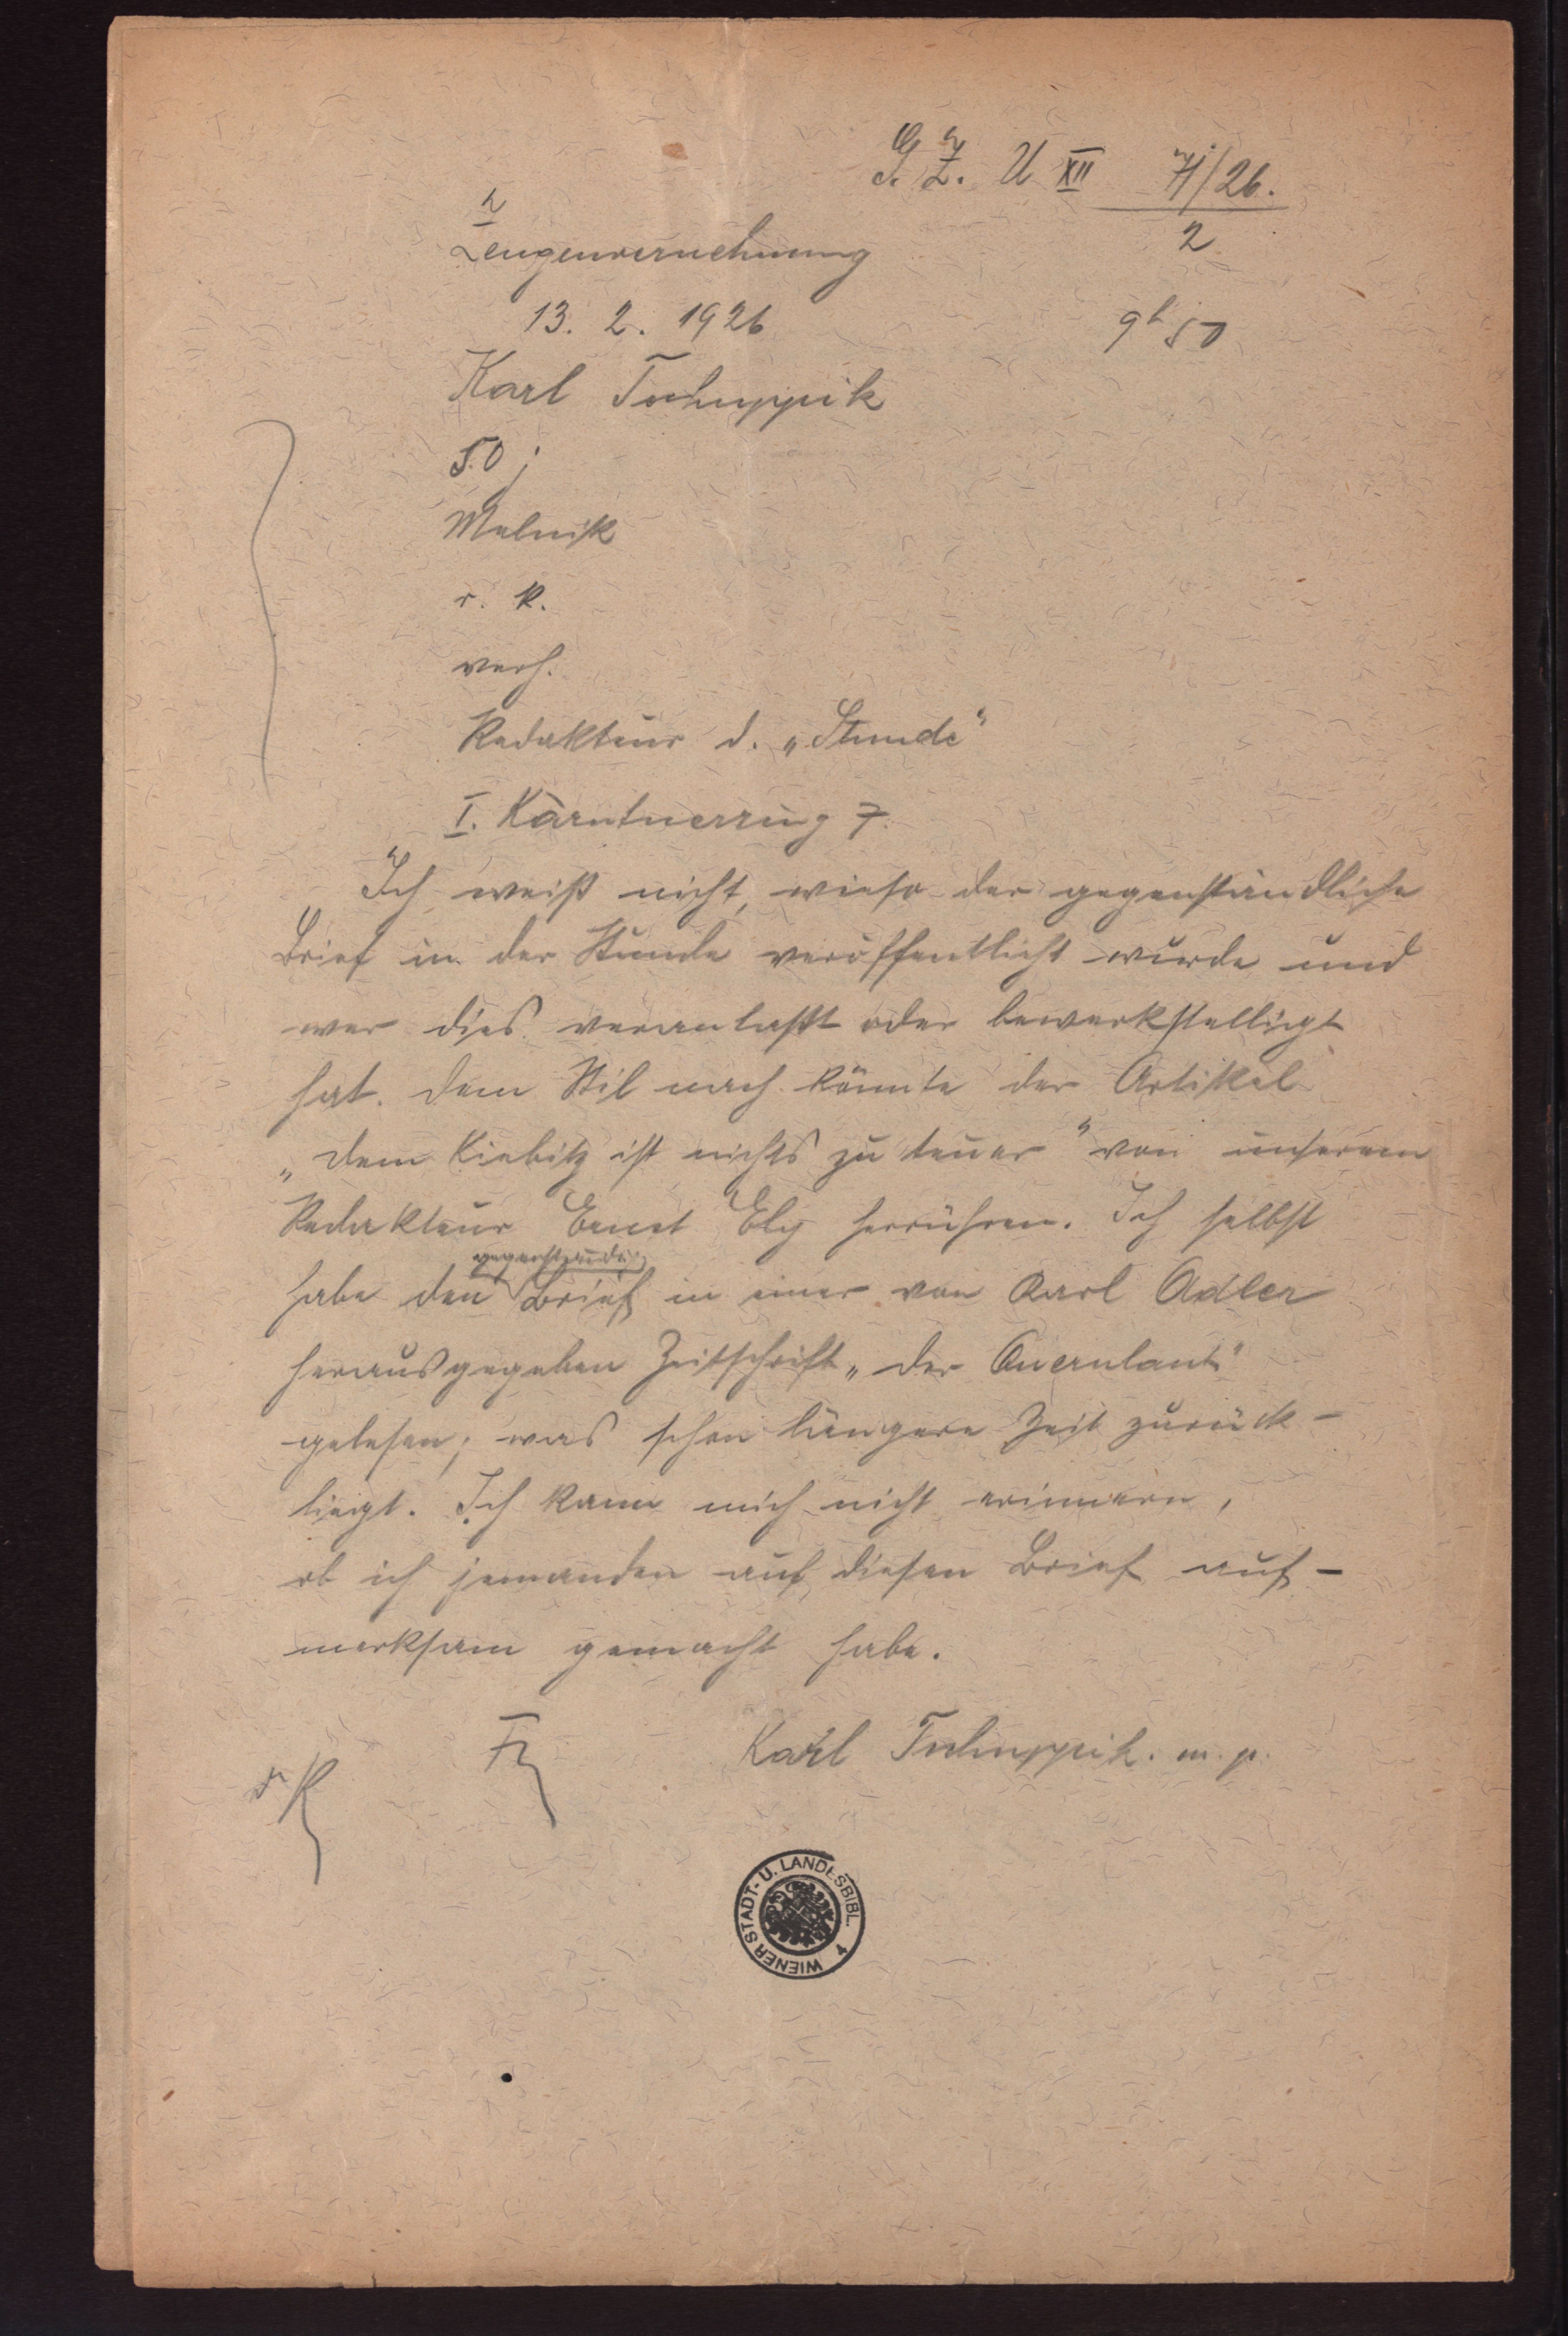 G. Z. U XII 71/26.
2
Zeugenvernehmung
13. 2. 1926
9h 50
Karl Tschuppik
50 j
Melnik
r. k.
verh.
Redakteur d. „Stunde“
I. Kärntnerring 7.
Ich weiß nicht, wieso der gegenständliche
Brief in der Stunde veröffentlicht wurde und
wer dies veranlaßt oder bewerkstelligt
hat. Dem Stil nach könnte der Artikel
„Dem Kiebitz ist nichts zu teuer“ von unserem
Redakteur Ernst Ely herrühren. Ich selbst
gegenständ.
habe den Brief in einer von Karl Adler
herausgegeben Zeitschrift „Der Querulant“
gelesen; was schon längere Zeit zurück-
liegt. Ich kann mich nicht erinnern,
ob ich jemanden auf diesen Brief auf-
merksam gemacht habe.
Karl Tschuppik. m. p.
WIENER STADT- U. LANDESBIBL. 4